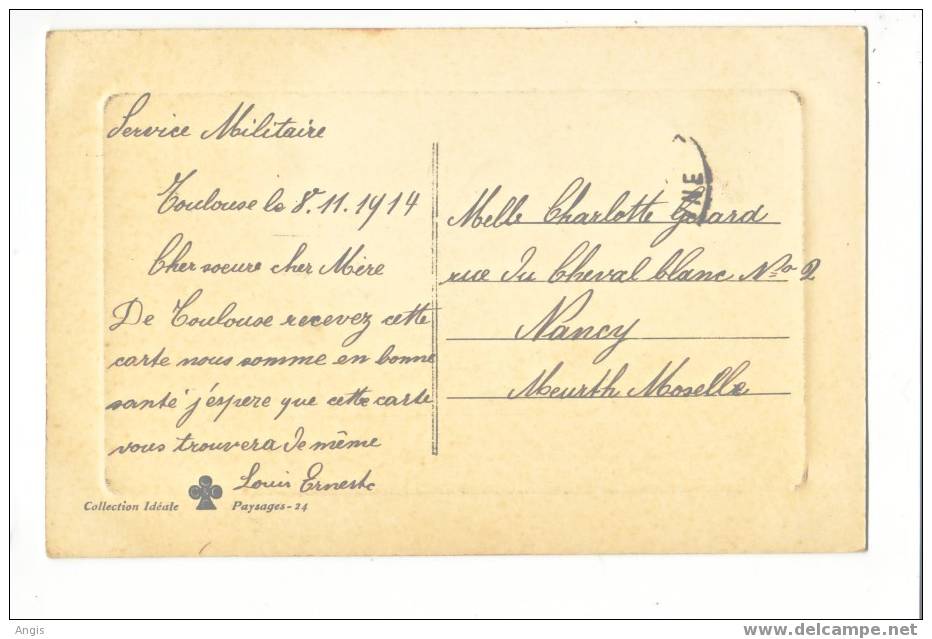 Service Militaire
Toulouse le 8.11.1914
Cher soeure cher Mère
De Toulouse recevez cette
carte nous somme en bonne
santé j'éspere que cette carte
vous trouvera de même
Louis Erneste
Collection Idéale
Paysages-24
Melle Charlotte Gérard
rue du Cheval blanc No 2
Nancy
Meurth Moselle
NE
Angis
www.delcampe.net